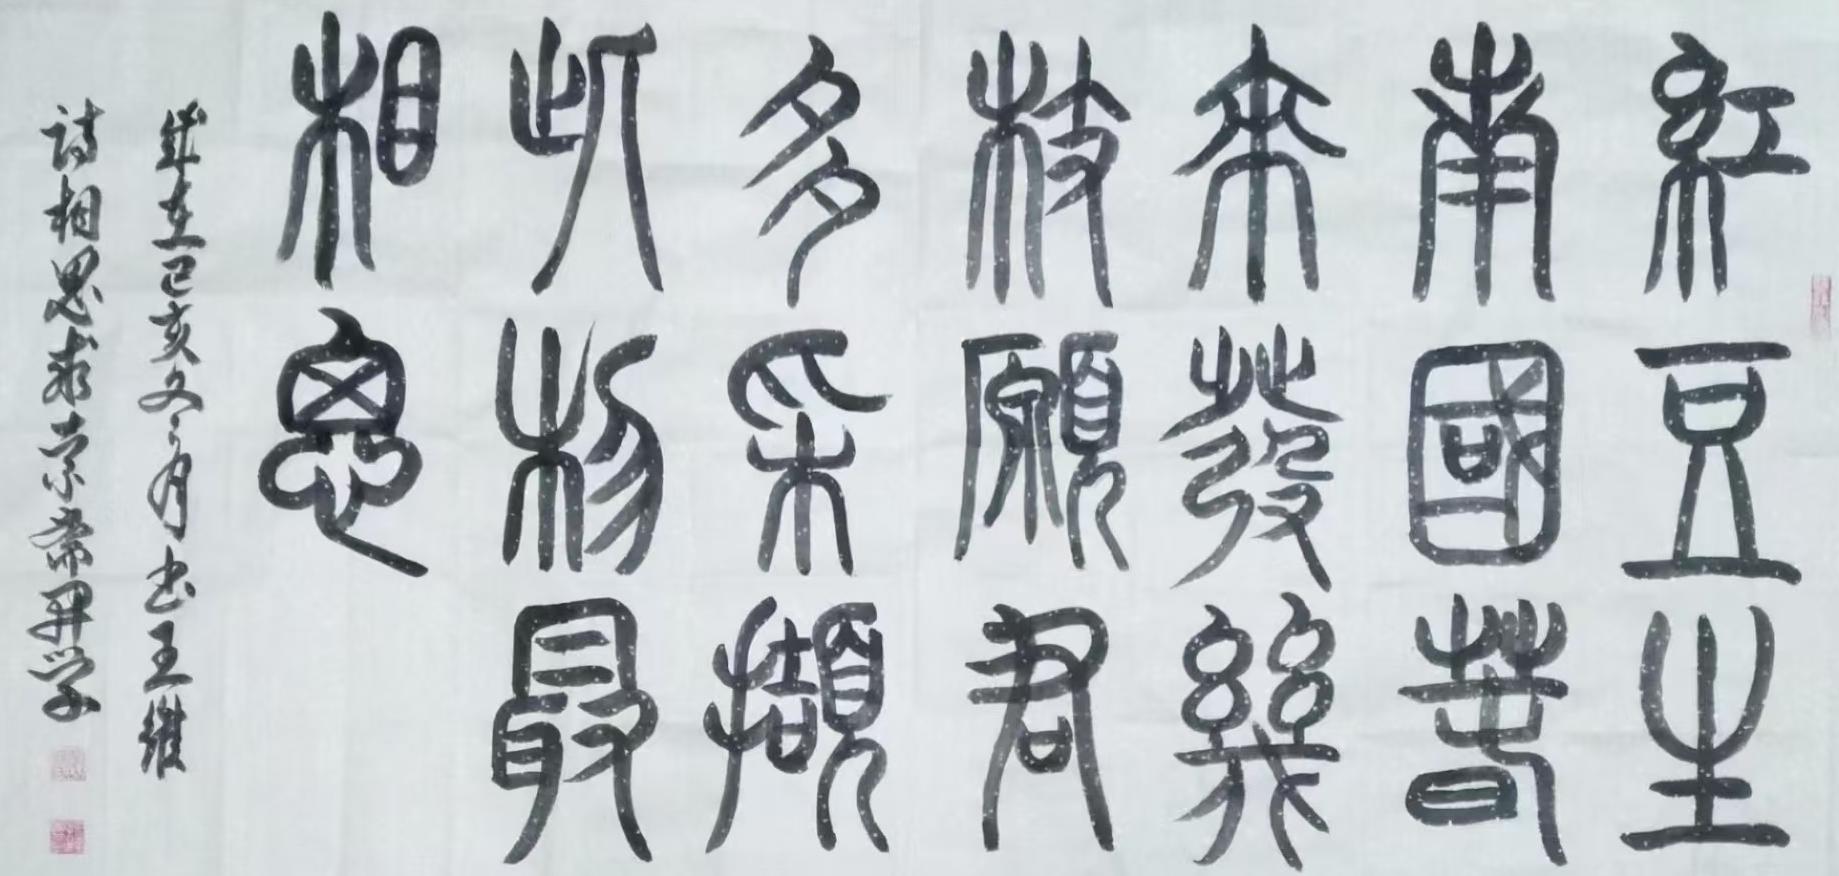 紅豆生
南國春
來發幾
枝願君
多采擷
此物最
相思
歲在己亥冬月书王維
詩相思